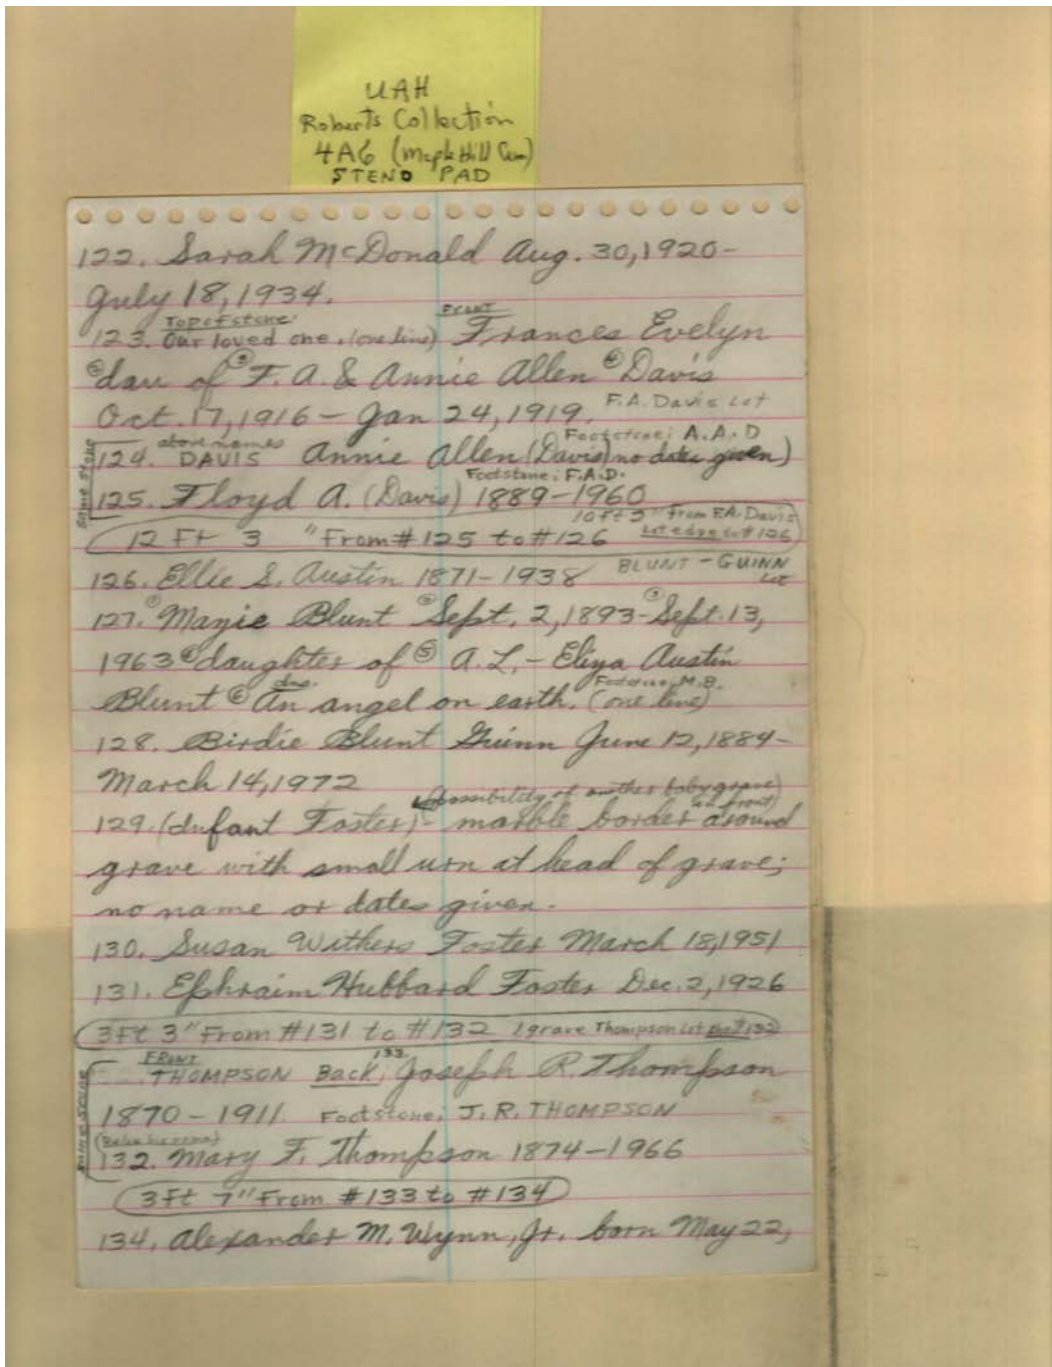 UAH
Roberts Collection
4A6 (Maple Hill Cem)
STENO PAD
122. Sarah McDonald Aug. 30, 1920-
July 18, 1934.
Top of stone FRONT
123. Our loved one. (one line) Frances Evelyn
② dau of ③ F. A. & Annie Allen ④ Davis
Oct. 17, 1916 - Jan 24, 1919. F.A. Davis Lot
above names Footstone: A.A.D
124. DAVIS Annie Allen (Davis) no dates given)
Footstone: F.A.D.
same stone 125. Floyd A. (Davis) 1889-1960
10 ft 3" from F.A. Davis
12 Ft 3 "From #125 to #126 Lot edge to #126
126. Ellie S. Austin 1871-1938 BLUNT-GUINN Lot
127. Mayie Blunt ② Sept. 2, 1893- ③ Sept. 13,
1963 ④ daughter of ⑤ A. L. - Eliza Austin
Footstone: M.B.
Blunt ⑥ An angel on earth. (one line)
128. Birdie Blunt Guinn June 12, 1884-
March 14, 1972
(possibility of another baby grave in front)
129. (Infant Foster)- marble border around
grave with small urn at head of grave;
no name or dates given.
130. Susan Withers Foster March 18, 1951
131. Ephraim Hubbard Foster Dec. 2, 1926
3Ft 3" From #131 to #132 1 grave Thompson Lot #132
FRONT 133.
THOMPSON Back; Joseph R. Thompson
1870-1911 Footstone; J. R. THOMPSON
(Below his name)
same stone 132. Mary F. Thompson 1874-1966
3Ft 7" From #133 to #134
134. Alexander M. Wynn, Jr. born May 22,